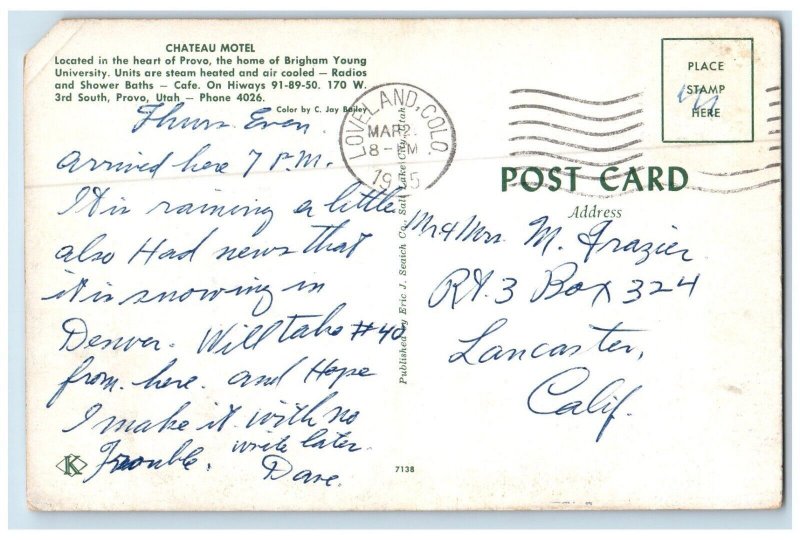 CHATEAU MOTEL
Located in the heart of Provo, the home of Brigham Young
University. Units are steam heated and air cooled — Radios
and Shower Baths — Cafe. On Hiways 91-89-50. 170 W.
3rd South, Provo, Utah — Phone 4026.
Color by C. Jay Bailey
Thurs Even.
arrived here 7 P.M.
It is raining a little
also Had news that
it is snowing in
Denver. Will take #40
from here. and Hope
I make it with no
Trouble. write later.
Dave.
K
Published by Eric J. Seaich Co., Salt Lake City, Utah
7138
LOVELAND, COLO.
MAR 2
PM
PLACE
STAMP
HERE
POST CARD
Address
Mr & Mrs. M. Frazier
Rt. 3 Box 324
Lancaster,
Calif.